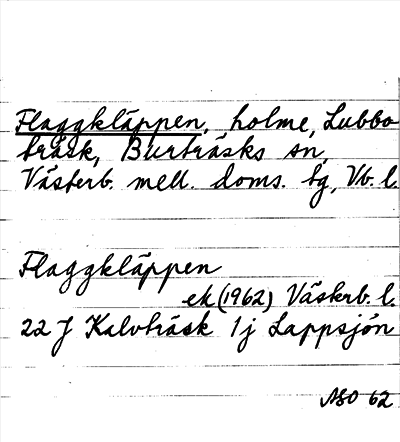 Flaggkläppen, holme, Lubbo-
träsk, Burträsks sn,
Västerb. mell. doms. tg, Vb. l.
Flaggkläppen
ek (1962) Västerb. l.
22 J Kalvträsk 1j Lappsjön
NSO 62